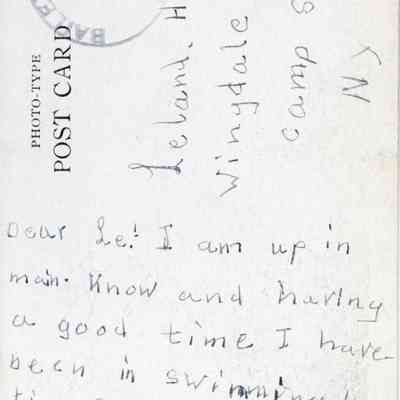 PHOTO-TYPE
POST CARD
BAILEY
Leland. H
Wingdale
Camp S
NY
Dear Le! I am up in
main. Know and having
a good time I have
been in swimming